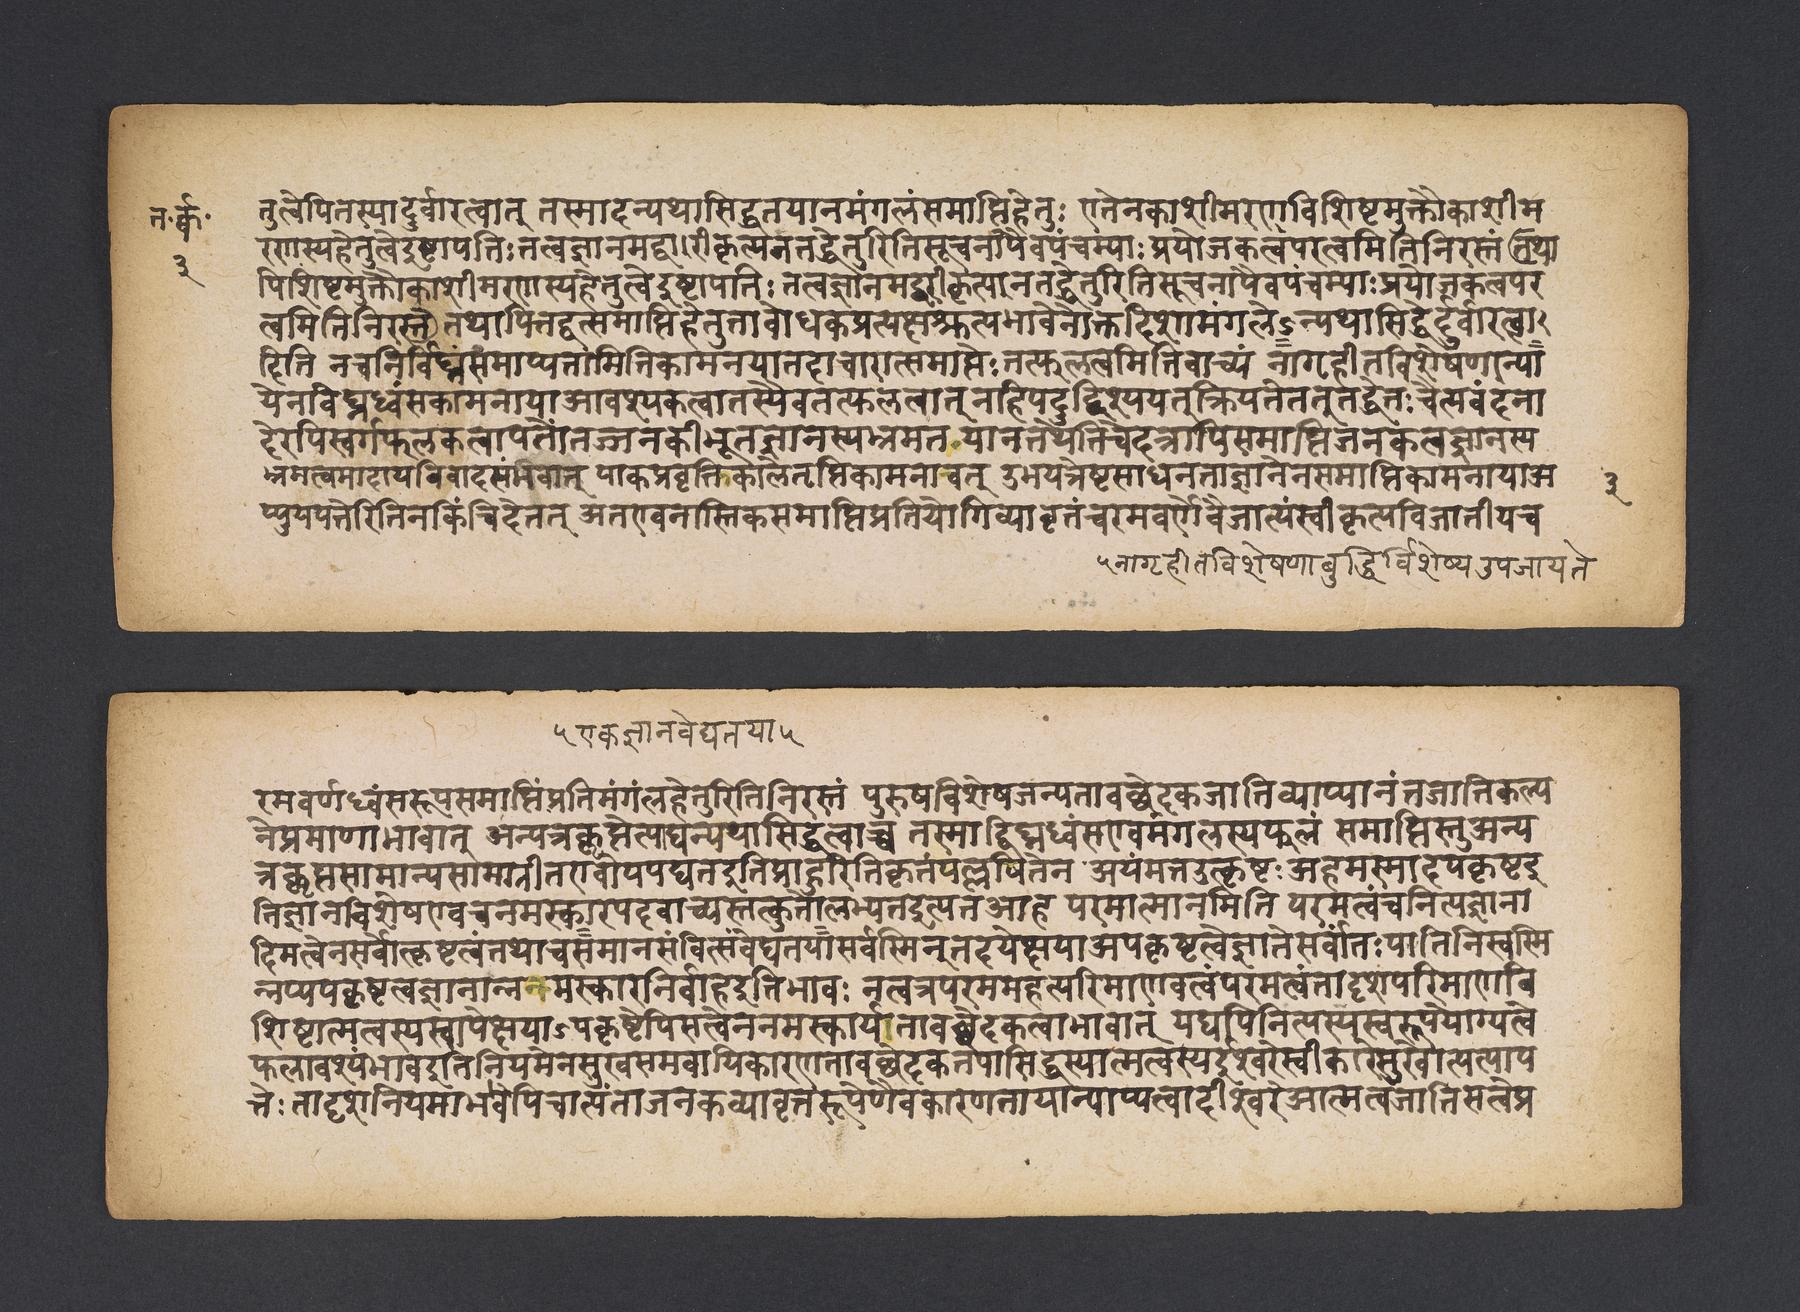 त॰र्क॰
३
तुत्वेपितस्यादुर्वारत्वात् तस्मादन्यथासिद्धतयानमंगलंसमाप्तिहेतुः एतेनकाशीमरणविशिष्टमुक्तौकाशीम
रणस्यहेतुत्वेदुष्टापत्तिः तत्वज्ञानमद्वारीकृत्यनतद्धेतुरितिसूचनायैवपंचम्याः प्रयोजकत्वपरत्वमितिनिरस्तं तथा
पिशिष्टमुक्तौकाशीमरणस्यहेतुत्वेदुष्टापत्तिः तत्वज्ञानमद्वारीकृत्यानतद्धेतुरितिसूचनायैवपंचम्याः प्रयोजकत्वपर
त्वमितिनिरस्तं तथापितद्वत्समाप्तिहेतुताबोधकप्रत्यक्षश्रुत्यभावेनोक्तदिशामंगलेऽन्यथासिद्धेर्दुर्वारत्वा
दिति नचनिर्विघ्नंसमाप्यतामितिकामनयातदाचारात्समाप्तेः तत्फलत्वमितिवाच्यं नागृहीतविशेषणान्या
येनविघ्नध्वंसकामनायाआवश्यकत्वातस्यैवतत्फलत्वात् नहियदुद्दिश्ययत्क्रियतेतत्तुतद्धेतः चैत्यवंदना
देरपिस्वर्गफलकत्वापत्तेः तज्जनकीभूतज्ञानस्यभ्रमत यानतत्तथेतिचेदत्रापिसमाप्तिजनकत्वज्ञानस्य
भ्रमत्वमादायविवादसंभवात् पाकप्रवृत्तिकालेतृप्तिकामनावत् उभयत्रेष्टसाधनताज्ञानेनसमाप्तिकामनायाअ
प्युपपत्तेरितिनकिंचिदेतत् अतएवनास्तिकसमाप्तिप्रतियोगिव्यावृत्तंचरमवर्णेवैजात्यंस्वीकृत्यविजातीयच
३
५नागृहीतविशेषणाबुद्धिर्विशेष्यउपजायते
५एकज्ञानवेद्यतया५
रमवर्णध्वंसरूपसमाप्तिंप्रतिमंगलंहेतुरितिनिरस्तं पुरुषविशेषजन्यतावच्छेदकजातिव्याप्यानंतजातिकल्प
नेप्रमाणाभावात् अन्यत्रकॢप्तेत्याद्यन्यथासिद्धत्वाच्च तस्माद्विघ्नध्वंसएवमंगलस्यफलं समाप्तिस्तुअन्य
त्रकॢप्तसामान्यसामग्रीतएवोपपद्यतइतिप्राहुरितिकृतंपल्लवितेन अयंमत्तउत्कृष्टः अहमस्मादपकृष्टइ
तिज्ञानविशेषएवचनमस्कारपदवाच्यस्तत्कुतोलभ्यतइत्यतआह परमात्मानमिति परमत्वंचनित्यज्ञाना
दिमत्वेनसर्वोत्कृष्टत्वंतथाचसमानसंवित्संवेद्यतयासर्वस्मिन्तदपेक्षयाअपकृष्टत्वेज्ञातेसर्वांतःपातिनिस्वस्मि
न्नप्यपकृष्टत्वज्ञानान्ननमस्कारनिर्वाहइतिभावः नत्वत्रपरममहत्परिमाणवत्वंपरमत्वंतादृशपरिमाणवि
शिष्टात्मत्वस्यस्वापेक्षयाऽपकृष्टेपिसत्वेननमस्कार्यतावच्छेदकत्वाभावात् यद्यपिनित्यस्यस्वरूपयोग्यत्वे
फलावश्यंभावइतिनियमेनसुखसमवायिकारणतावच्छेदकतयासिद्धस्यात्मत्वस्येश्वरेस्वीकारेसुखोत्पत्याप
त्तेः तादृशनियमाभावेपिचात्यंताजनकव्यावृत्तरूपेणैवकारणतायान्याय्यत्वादीश्वरेआत्मत्वजातिसत्वेप्र